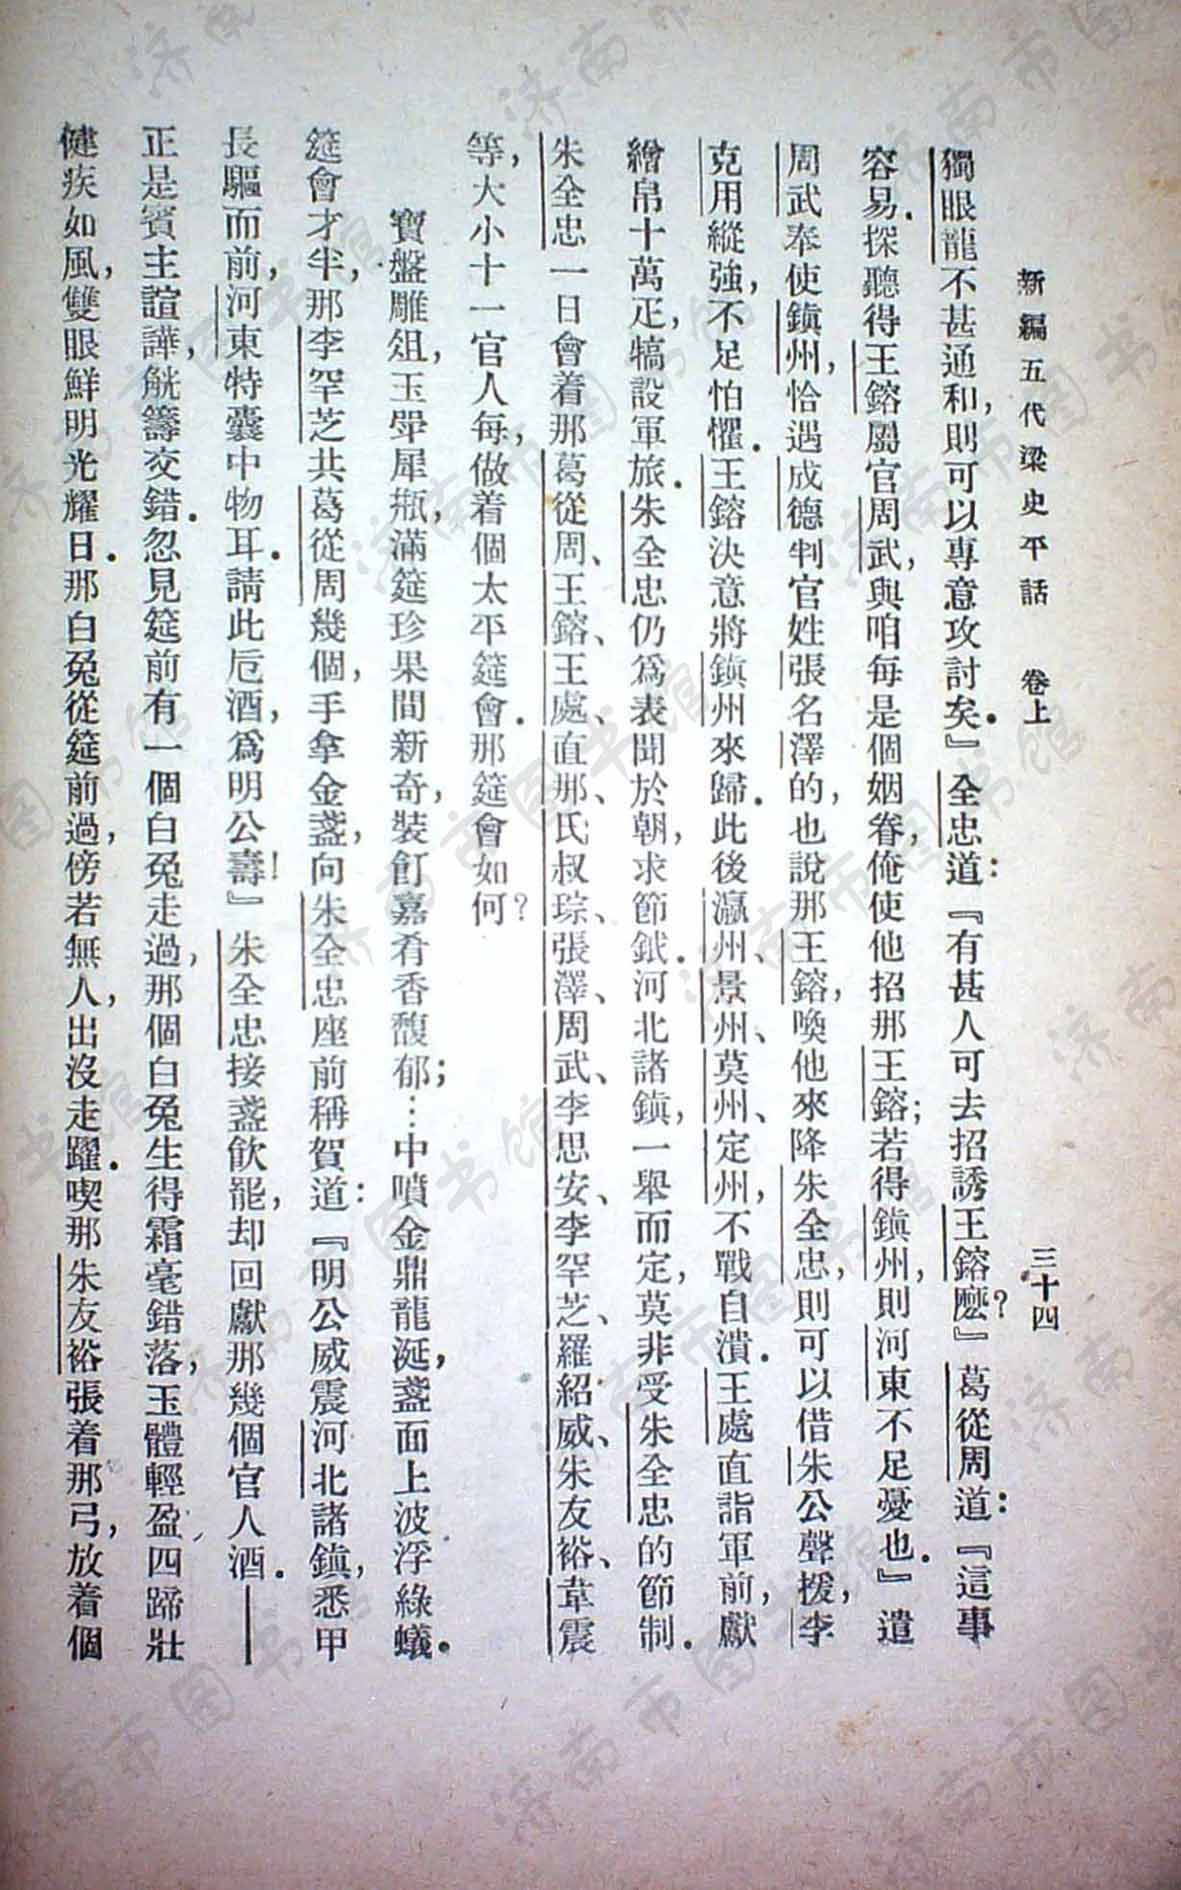 新編五代梁史平話 卷上 三十四
獨眼龍不甚通和,則可以專意攻討矣.』全忠道:『有甚人可去招誘王鎔麼?』葛從周道:『這事
容易.探聽得王鎔屬官周武,與咱每是個姻眷,俺使他招那王鎔;若得鎭州,則河東不足憂也.』遣
周武奉使鎭州,恰遇成德判官姓張名澤的,也說那王鎔,喚他來降朱全忠,則可以借朱公聲援,李
克用縱強,不足怕懼.王鎔決意將鎭州來歸.此後瀛州、景州、莫州、定州,不戰自潰.王處直詣軍前,獻
繒帛十萬疋,犒設軍旅.朱全忠仍爲表聞於朝,求節鉞.河北諸鎭,一舉而定,莫非受朱全忠的節制.
朱全忠一日會着那葛從周、王鎔、王處、直那、氏叔琮、張澤、周武、李思安、李罕芝、羅紹威、朱友裕、韋震
等,大小十一官人每,做着個太平筵會.那筵會如何?
寶盤雕俎,玉斝犀瓶,滿筵珍果間新奇,裝飣嘉肴香馥郁;…中噴金鼎龍涎,盞面上波浮綠蟻.
筵會才半,那李罕芝共葛從周幾個,手拿金盞,向朱全忠座前稱賀道:『明公威震河北諸鎭,悉甲
長驅而前,河東特囊中物耳.請此卮酒,爲明公壽!』朱全忠接盞飲罷,却回獻那幾個官人酒.
正是賓主諠譁,觥籌交錯.忽見筵前有一個白兔走過,那個白兔生得霜毫錯落,玉體輕盈,四蹄壯
健疾如風,雙眼鮮明光耀日.那白兔從筵前過,傍若無人,出沒走躍.喫那朱友裕張着那弓,放着個
济南市图书馆